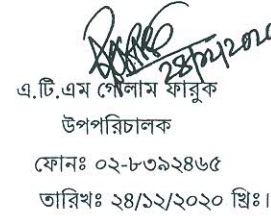 ২৪/১২/২০২০
এ.টি.এম গোলাম ফারুক
উপপরিচালক
ফোনঃ ০২-৮৩৯২৪৬৫
তারিখঃ ২৪/১২/২০২০ খ্রিঃ।